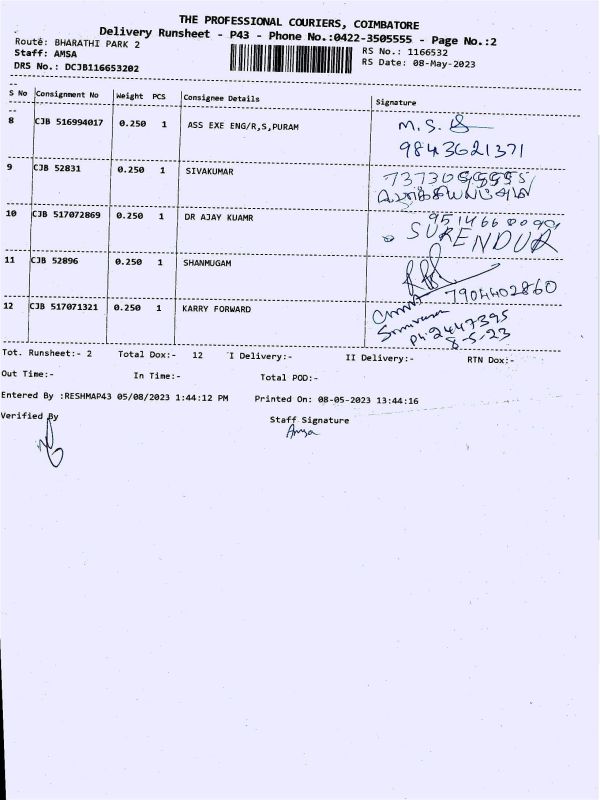 THE PROFESSIONAL COURIERS, COIMBATORE
Delivery Runsheet - P43 - Phone No.:0422-3505555 - Page No.:2
Route: BHARATHI PARK 2
RS No.: 1166532
Staff: AMSA
RS Date: 08-May-2023
DRS No.: DCJB116653202
S No Consignment No Weight PCS Consignee Details Signature
8 CJB 516994017 0.250 1 ASS EXE ENG/R,S,PURAM M.S.
9843621371
9 CJB 52831 0.250 1 SIVAKUMAR
10 CJB 517072869 0.250 1 DR AJAY KUAMR
SURENDUR
11 CJB 52896 0.250 1 SHANMUGAM
7904402860
12 CJB 517071321 0.250 1 KARRY FORWARD
Ph: 2447395
8-5-23
Tot. Runsheet:- 2 Total Dox:- 12 I Delivery:- II Delivery:- RTN Dox:-
Out Time:- In Time:- Total POD:-
Entered By :RESHMAP43 05/08/2023 1:44:12 PM Printed On: 08-05-2023 13:44:16
Verified By Staff Signature
Amsa